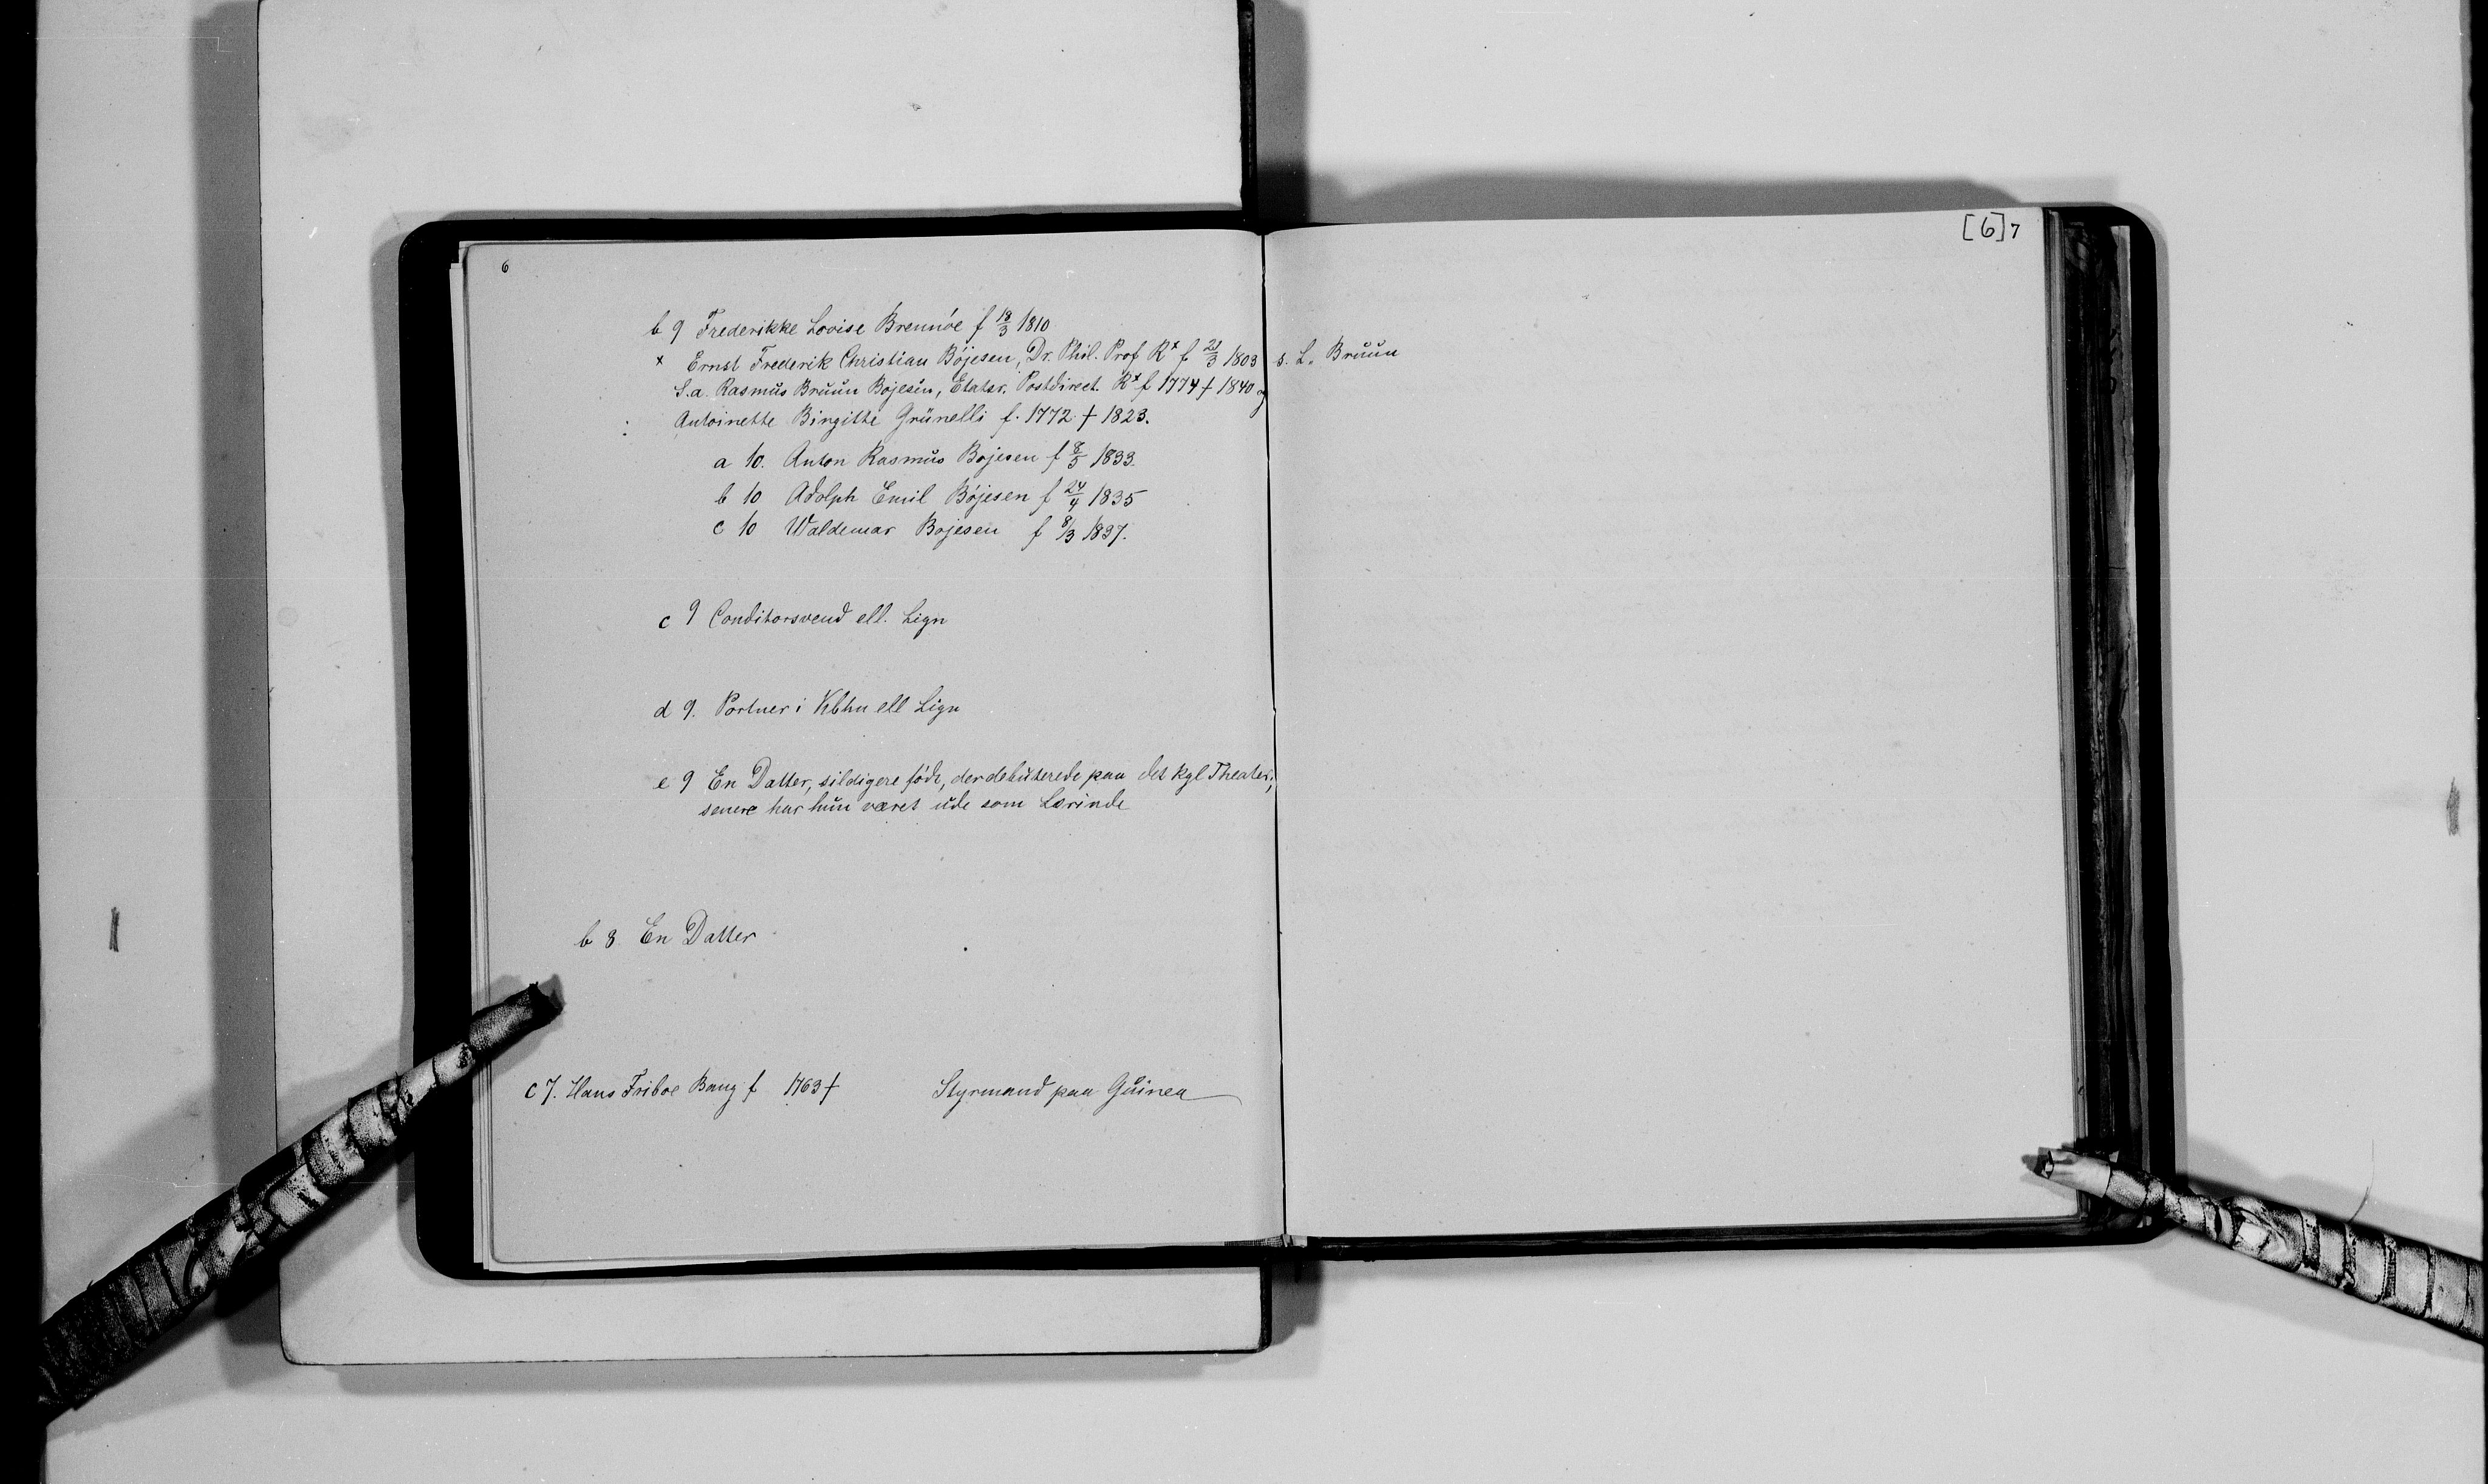 6
[6] 7
b 9 Frederikke Lovise Brennöe f 18/3 1810
x Ernst Frederik Christian Böjesen, Dr. Phil. Prof Rx f 21/3 1803 s. L. Bruun
S.a. Rasmus Bruun Bojesen, Etatsr. Postdirect. Rx f 1774 † 1840 og
Antoinette Birgitte Grünelli f. 1772 † 1823.
a 10. Anton Rasmus Bojesen f 8/5 1833.
b 10 Adolph Emil Böjesen f 24/4 1835
c 10 Waldemar Bojesen f 8/3 1837.
c 9 Conditorsvend ell. Lign
d 9. Portner i Kbhn ell Lign
e 9 En Datter, sildigere föde, der debuterede paa det kgl Theater;
senere har hun været ude som Lærinde
b 8 En Datter
c 7. Hans Friboe Bang f 1763 † Styrmand paa Guinea